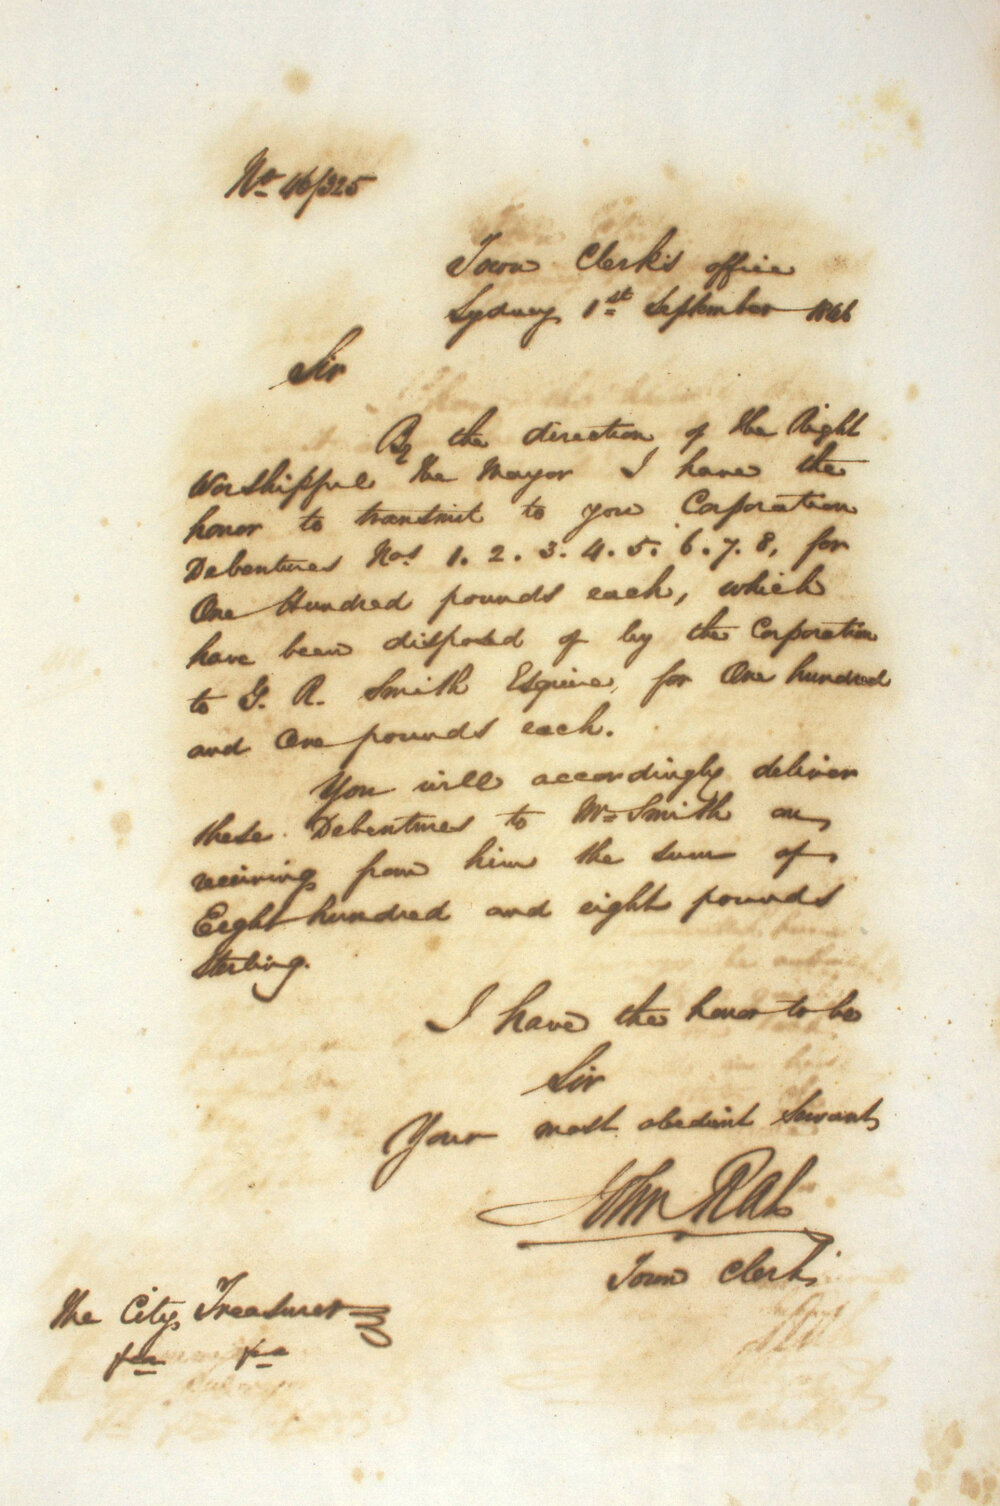 No 46/325
Town Clerk's office
Sydney 1st September 1846
Sir
By the direction of the Right
Worshipful the Mayor I have the
honor to transmit to you Corporation
Debentures Nos 1. 2. 3. 4. 5. 6. 7. 8, for
One Hundred pounds each, which
have been disposed of by the Corporation
to G. R. Smith Esquire, for One hundred
and One pounds each.
You will accordingly deliver
these Debentures to Mr Smith on
receiving from him the sum of
Eight hundred and eight pounds
Sterling.
I have the honor to be
Sir
Your most obedient Servant
John Rae
Town Clerk
The City Treasurer